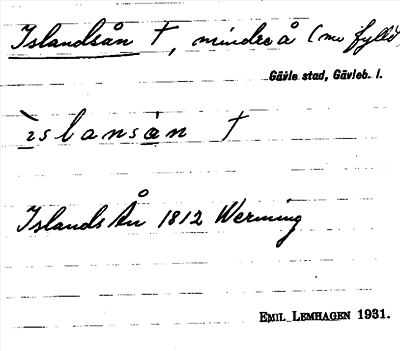 Islandsån †, mindre å (nu fylld
Gävle stad, Gävleb. l.
ìslansån †
Islands Ån 1812 Werming
EMIL LEMHAGEN 1931.